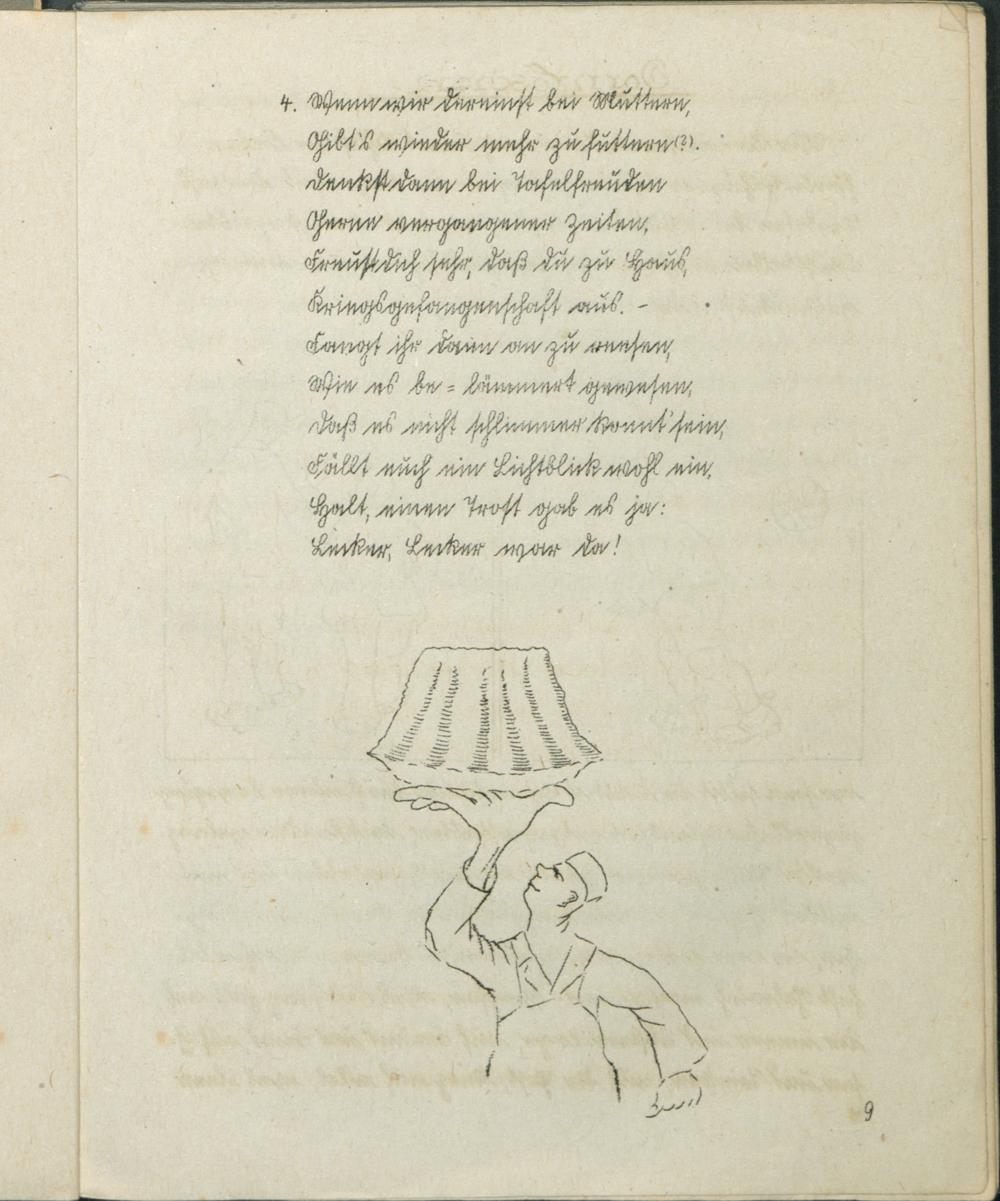 4. Wenn wir dereinst bei Muttern,
Gibt's wieder mehr zu futtern(?).
Denkst dann bei Tafelfreuden
Gerne vergangener Zeiten,
Freust dich sehr, daß du zu Haus,
Kriegsgefangenschaft aus. –
Fangt ihr dann an zu reesen,
Wie es be = lämmert gewesen,
Daß es nicht schlimmer konnt' sein,
Fällt euch ein Lichtblick wohl ein.
Halt, einen Trost gab es ja:
Lecker, Lecker war da!
9